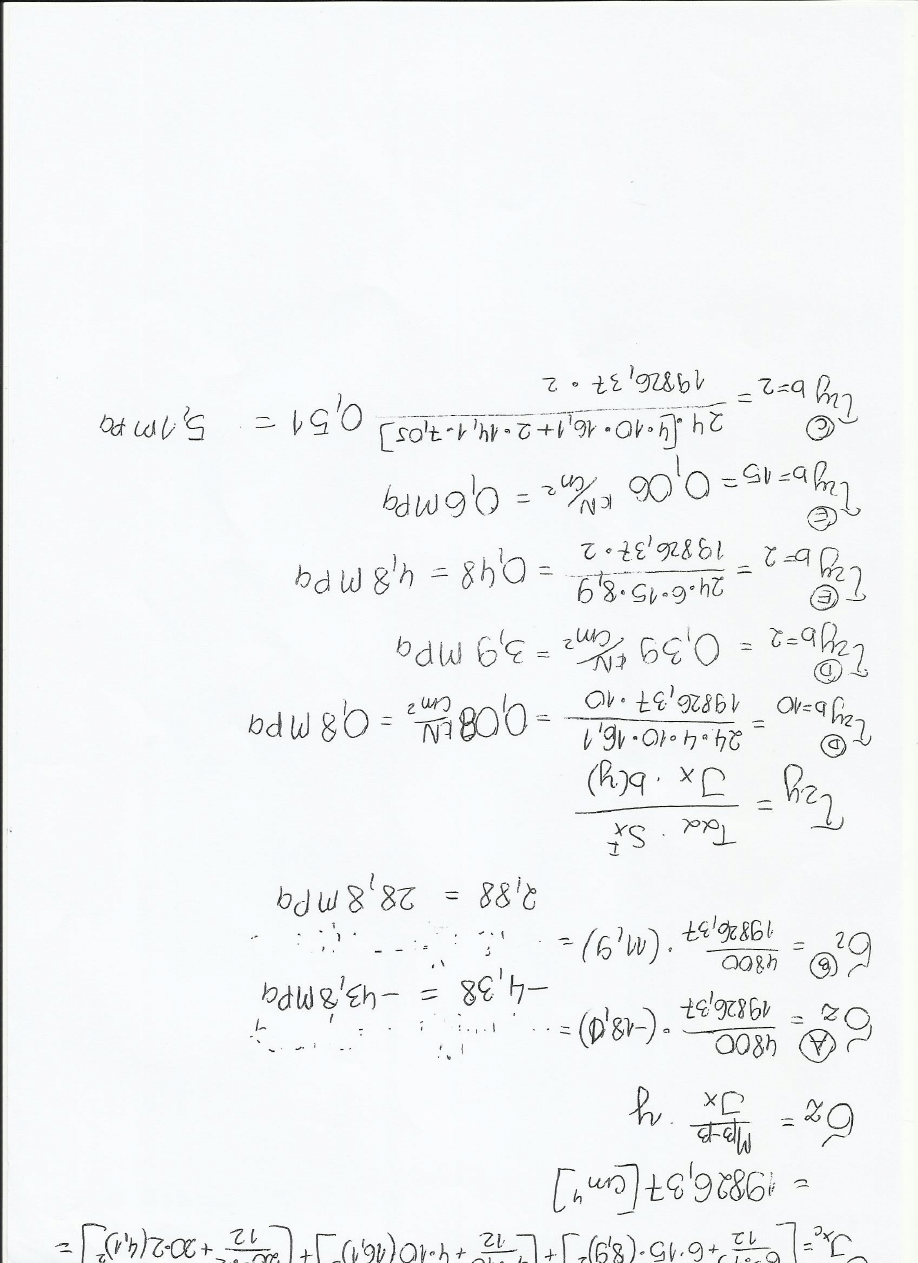 J_xc = [6·15³/12 + 6·15·(8,9)²] + [4³·10/12 + 4·10(16,1)²] + [/12 + 20·2(4,1)²] =
= 19826,37 [cm⁴]
σz = M_β-β/Jx · y
σz Ⓐ = 4800/19826,37 · (-18,1) = -4,38 = -43,8 mPa
σz Ⓑ = 4800/19826,37 · (11,9) = 2,88 = 28,8 mPa
τzy = Tαα · Sxᴵ / Jx · b(y)
τzy b=10 Ⓓ = 24·4·10·16,1 / 19826,37 · 10 = 0,08 kN/cm² = 0,8 mPa
τzy b=2 Ⓓ = 0,39 kN/cm² = 3,9 mPa
τzy b=2 Ⓔ = 24·6·15·8,9 / 19826,37·2 = 0,48 = 4,8 mPa
τzy b=15 Ⓔ = 0,06 kN/cm² = 0,6 mPa
τzy b=2 Ⓒ = 24·[4·10·16,1+2·14,1·7,05] / 19826,37 · 2 0,51 = 5,1 mPa